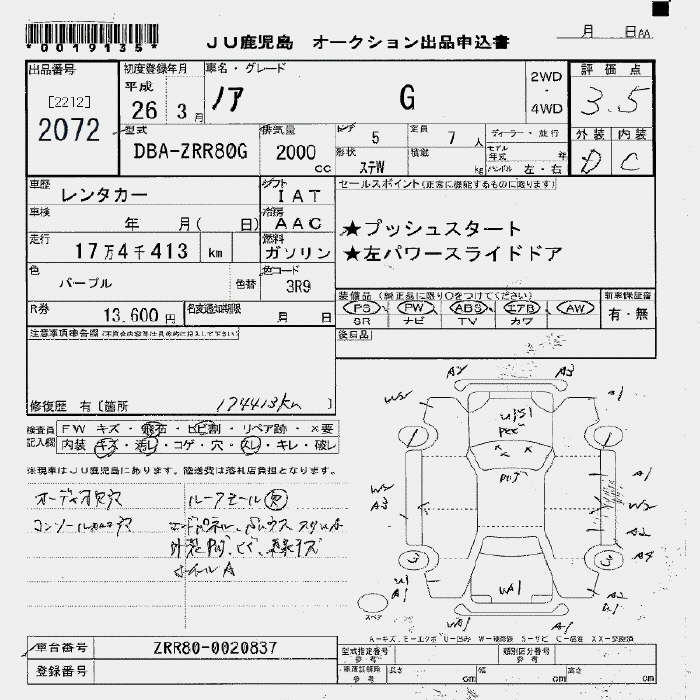 *0019135*
JU鹿児島 オークション出品申込書
月 日AA
出品番号
[2212]
2072
初度登録年月
平成
26 3月
車名・グレード
ノア G
2WD
・
4WD
評価点
3.5
外装 内装
D C
型式
DBA-ZRR80G
排気量
2000
cc
ドア 5
定員 7 人
形状 ステW
積載 kg
ディーラー・並行
モデル年式 年
ハンドル 左・右
車歴
レンタカー
シフト
IAT
車検
年 月( 日)
冷房
AAC
走行
17万4千413 km
燃料
ガソリン
色
パープル
色替
色コード
3R9
R券
13,600 円
名変通知期限
月 日
セールスポイント(正常に機能するものに限ります)
★プッシュスタート
★左パワースライドドア
装備品(純正品に限り○をつけてください)
PS PW ABS エアB AW
SR ナビ TV カワ
新車保証書
有・無
後日品
注意事項申告欄
修復歴 有〔箇所 174413km 〕
検査員記入欄
FW キズ・飛石・ヒビ割・リペア跡・×要
内装 キズ・汚レ・コゲ・穴・スレ・キレ・破レ
※現車はJU鹿児島にあります。陸送費は落札店負担となります。
オーディオ欠穴
A2 A3
A1
W2
A3
A2
A4
A1
WA1
スペア
A-キズ、E-エクボ U-凹み W-補修跡 S-サビ C-腐食 XX-交換済
車台番号 ZRR80-0020837
登録番号
型式指定番号
参考
類別区分番号
参考
参考
長さ cm
幅 cm
高さ cm